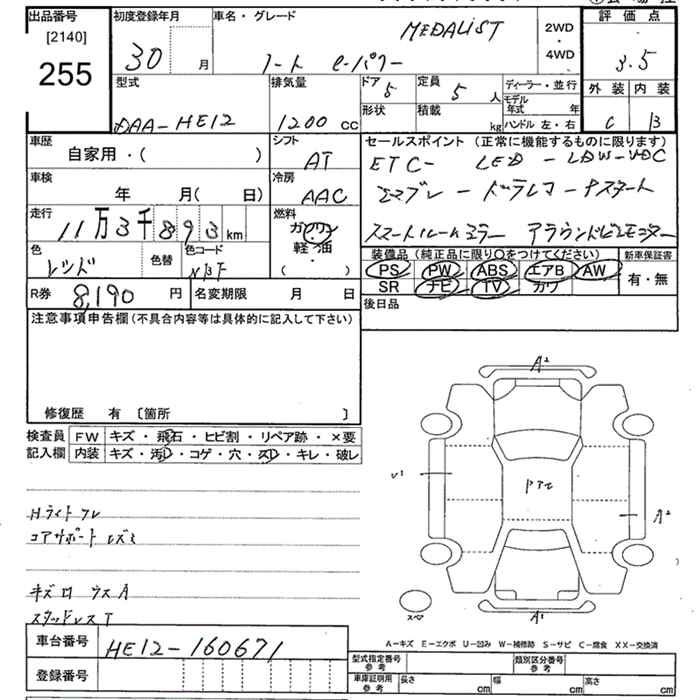 出品番号 初度登録年月 車名・グレード 評価点
[2140] MEDALIST 2WD
255 30 月 ノート e-パワー ・ 4WD 3.5
型式 排気量 ドア 定員 ディーラー・並行 外装 内装
DAA-HE12 1200 cc 5 5 人 モデル年式 年 C B
形状 積載 kg ハンドル 左・右
車歴 シフト セールスポイント(正常に機能するものに限ります)
自家用・( ) AT ETC- LED - LDW-VDC
車検 冷房 エマブレ - ドラレコ - Pスタート
年 月( 日) AAC
走行 燃料 スマートルームミラー アラウンドビューモニター
11万3千893km ガソリン
軽・油
( )
色 色替 色コード 装備品(純正品に限り○をつけてください) 新車保証書
レッド NBF PS PW ABS エアB AW 有・無
SR ナビ TV カワ
R券 8,190 円 名変期限 月 日 後日品
注意事項申告欄(不具合内容等は具体的に記入して下さい)
修復歴 有 〔箇所 〕
検査員 FW キズ・飛石・ヒビ割・リペア跡・×要
記入欄 内装 キズ・汚レ・コゲ・穴・スレ・キレ・破レ
A2
U1
A2
Hライトクレ
コアサポート レズミ
キズ ロ ウス A
スタッドレス T
スペア
A1
A-キズ E-エクボ U-凹み W-補修跡 S-サビ C-腐食 XX-交換済
車台番号 HE12-160671
登録番号
型式指定番号 参考 類別区分番号 参考
車庫証明用 参考 長さ cm 幅 cm 高さ cm